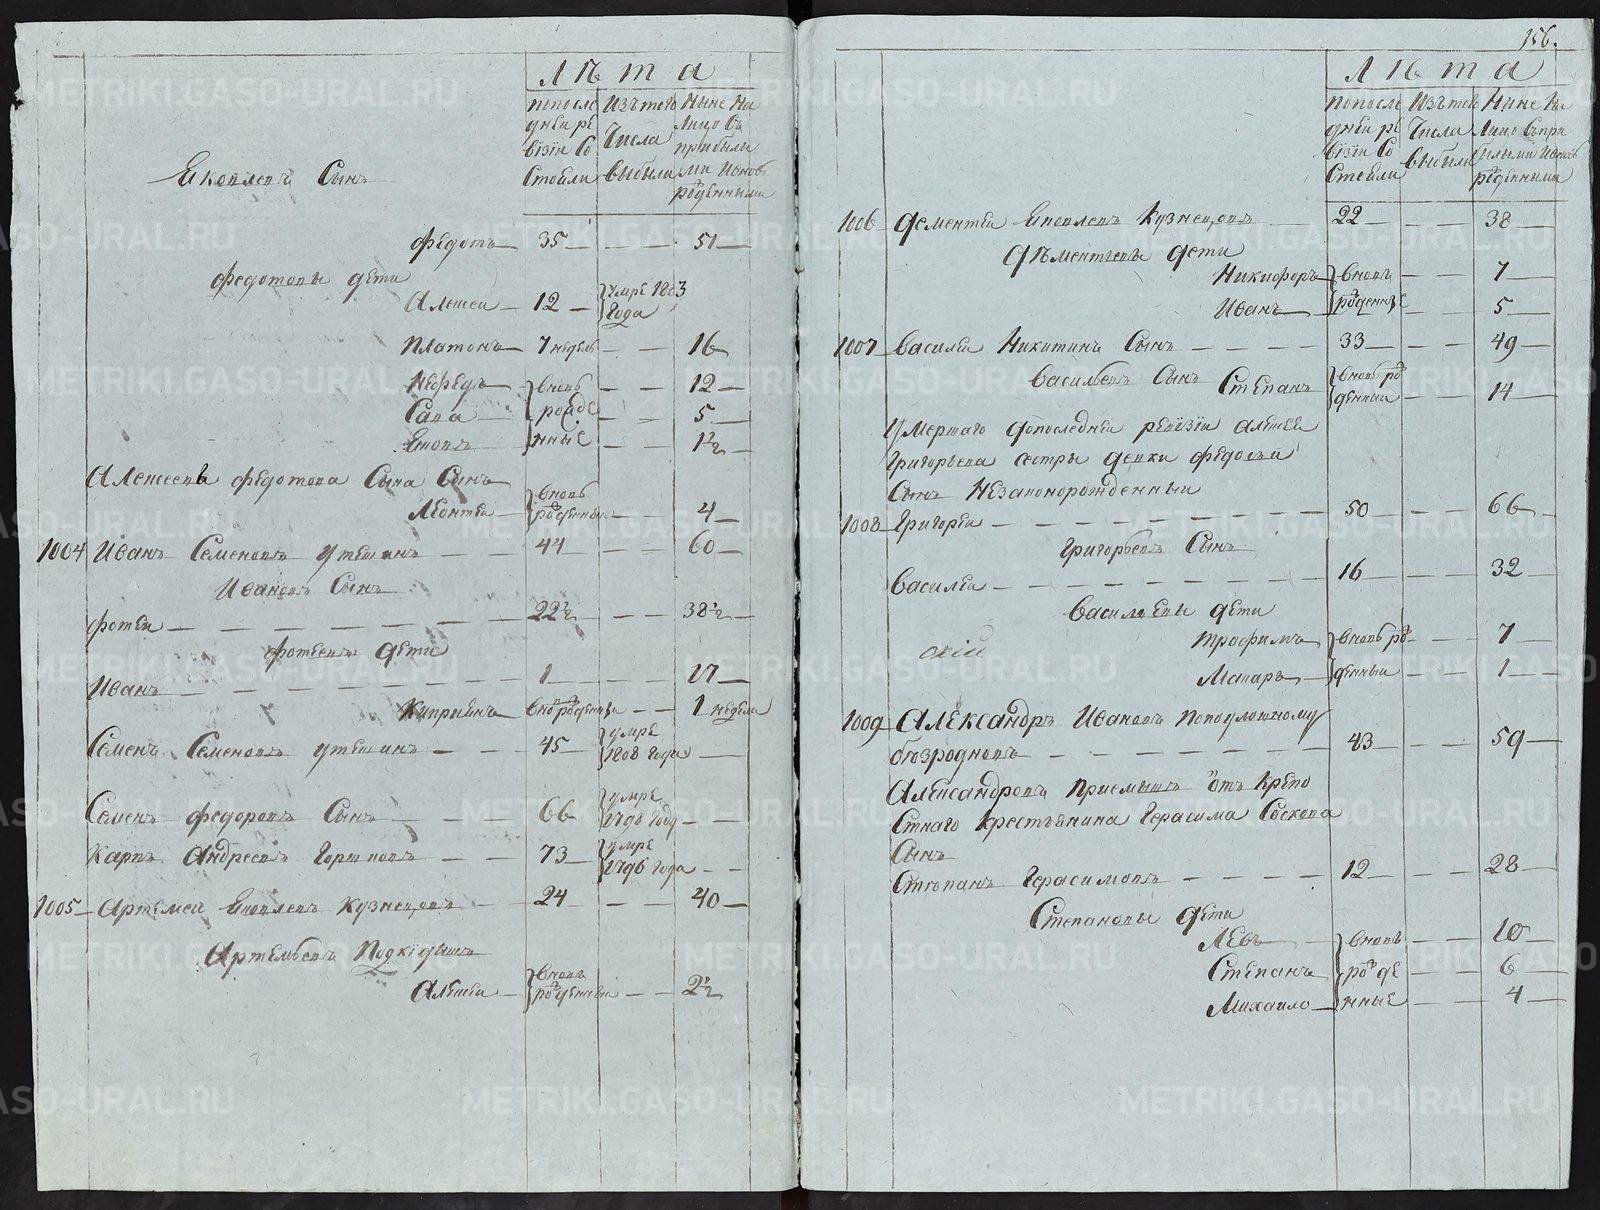 156.
Лѣта
по после
дней ре
визіи Со
Стояли
Изътого
Числа
выбыли
Ныне На
Лицо Съ
прибылы
ми И вновь
рожденными
Яковлевъ Сынъ
Федотъ — 35 — — 51
Федотовы дети
Алексеи — 12 — умре 1803 Года
Платонъ — 7 недель — — 16
Нефедъ — вновь — — 12
Сава — рожде — — 5
Яковъ — нные — — 1½
Алексеева Федотова Сына Сынъ
Леонтеи — вновь рожденныи — — 4
1004 Иванъ Семеновъ Утешинъ — — 44 — — 60
Ивановъ Сынъ
Фотеи — — — 22½ — — 38½
Фотеевы дети
Иванъ — — — 1 — — 17
Киприянъ — вноворожденныи — — 1 неделя
Семенъ Семеновъ Утешинъ — — 45 — умре 1808 Года —
Семенъ Федоровъ Сынъ — — 66 — умре 1798 Году — —
Карпъ Андреевъ Горшковъ — — 73 — умре 1796 Года — —
1005 Артемеи Яковлевъ Кузнецовъ — 24 — — 40
Артемьевъ Подкидышъ
Алексеи — вновь рожденныи — — 2½
Лѣта
по после
дней ре
визіи Со
Стояли
Изътого
Числа
выбыли
Ныне На
Лицо Съ при
былыми И вновь
рожденными
1006 Дементеи Яковлевъ Кузнецовъ — 22 — — 38
Дѣментьевы дети
Никифоръ — вновь — — 7
Иванъ — рожденные — — 5
1007 Василеи Никитинъ Сынъ — — 33 — — 49
Васильевъ Сынъ Степанъ — вновь рожденныи — — 14
Умершаго до последнеи ревизіи Алексея
Григорьева сестры девки Федосьи
Сынъ Незаконорожденныи
1008 Григореи — — — 50 — — 66
Григорьевъ Сынъ
Василеи — — — 16 — — 32
Васильевы дети
Трофимъ — вновь ро — — 7
Макаръ — жденныи — — 1
скій
1009 Александръ Ивановъ По подложному
благороднова — — — 43 — — 59
Александровъ Приемышъ отъ Крепо
Стнаго Крестьянина Герасима
Сынъ
Степанъ Герасимовъ — — — 12 — — 28
Степановы дети
Левъ — вновь — — 10
Степанъ — рожде — — 6
Михаило — нные — — 4
METRIKI.GASO-URAL.RU